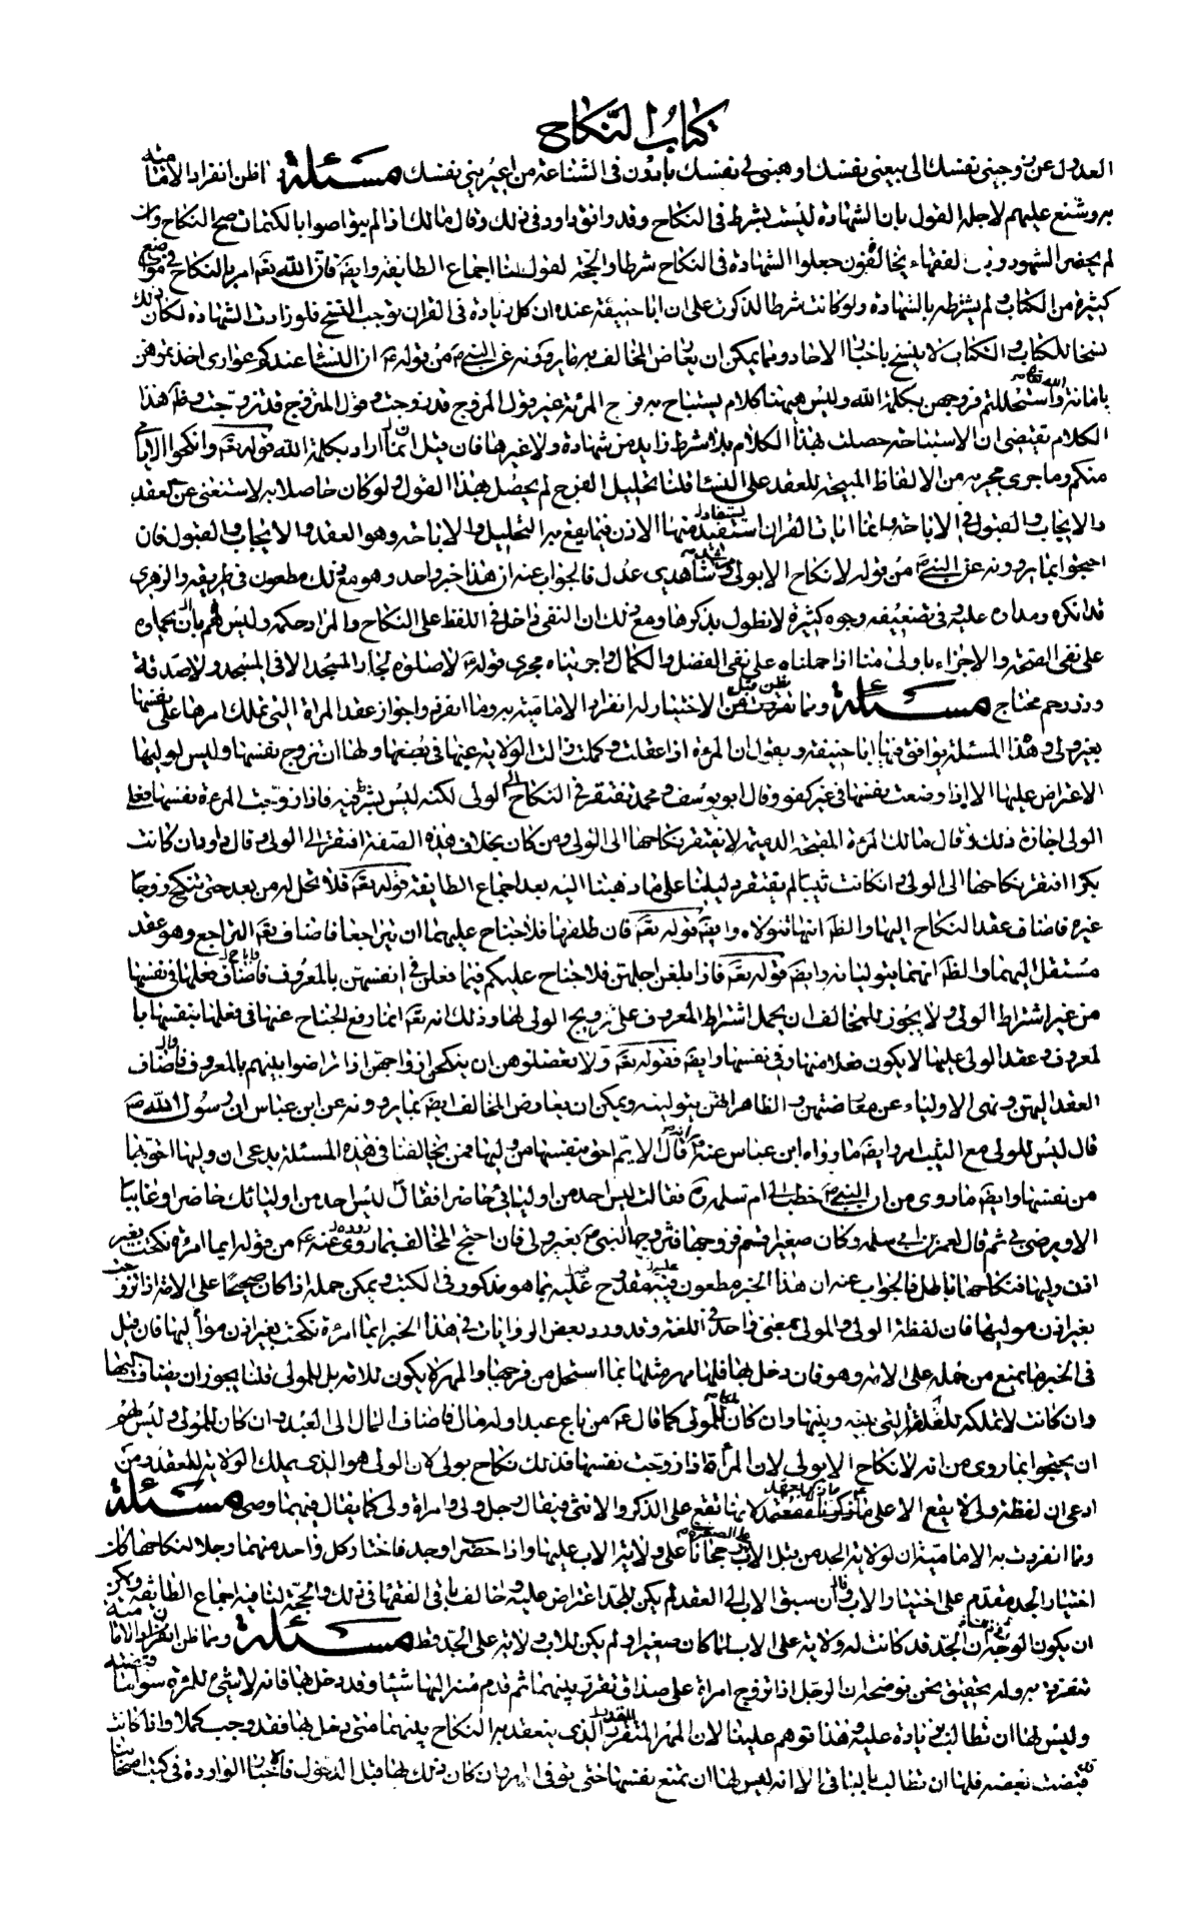 كتاب النكاح
العدول عن زوجيني نفسك الى بيعيني نفسك او هبني لي نفسك بادون في الشناعة من اعيريني نفسك مسئلة ظن انفراد الامامية
به وشنع عليهم لاجله القول بان الشهادة ليست بشرط في النكاح وقد وافق داود في ذلك وقال مالك اذا لم يتواصوا بالكتمان صح النكاح وان
لم يحضر الشهود وباقي الفقهاء يخالفون جعلوا الشهادة في النكاح شرطا والحجة لقولنا اجماع الطايفة وايضا فان الله تعالى امر بالنكاح في مواضع
كثيرة من الكتاب ولم يشترطه بالشهادة ولو كانت شرطا لذكرت على ان ابا حنيفة عنده ان كل زيادة في القران توجب النسخ فلو زادت الشهادة لكان ذلك
نسخا للكتاب والكتاب لا ينسخ باخبار الاحاد ومما يمكن ان يعارض المخالف به ما يروونه عن النبي ص من قوله ع ان النساء عندكم عواري اخذتموهن
بامانة الله تعالى واستحللتم فروجهن بكلمة الله وليس هيهنا كلام يستباح به فرج المرئة غير قول المزوج قد زوجت وقول المتزوج قد تزوجت وظاهر هذا
الكلام يقتضي ان الاستباحة حصلت بهذا الكلام بلا شرط زايد من شهادة ولا غيرها فان قيل انما اراد بكلمة الله قوله تعالى وانكحوا الايامى
منكم وما جرى مجريه من الالفاظ المبيحة للعقد على النساء قلنا تحليل الفرج لم يحصل بهذا القول ولو كان حاصلا به لاستغنى عن العقد
والايجاب والقبول في الاباحة وانما ايات القران استفيد منها الاذن فيما يقع به التحليل والاباحة وهو العقد والايجاب والقبول فان
احتجوا بما يروونه عن النبي ص من قوله لا نكاح الا بولي وشاهدي عدل فالجواب عنه ان هذا خبر واحد وهو مع ذلك مطعون في طريقه والزهري
قد انكره ومداره عليه وفي تضعيفه وجوه كثيرة لا نطول بذكرها ومع ذلك ان النفي داخل في اللفظ على النكاح والمراد حكمه وليس لهم بان يحملوه
على نفي الصحة والاجزاء باولى منا اذا حملناه على نفي الفضل والكمال واجريناه مجرى قوله ع لا صلوة لجار المسجد الا في المسجد ولا صدقة
وذو رحم محتاج مسئلة ومما ظن قبل الاختبار له انفراد الامامية به وما انفردوا جواز عقد المراة التي تملك امرها على نفسها
بغير ولي وهذا المسئلة يوافق فيها ابا حنيفة ويقول ان المرءة اذا عقلت وكملت زالت الولاية عنها في بضعها ولها ان تزوج نفسها وليس لوليها
الاعتراض عليها الا اذا وضعت نفسها في غير كفو وقال ابو يوسف ومحمد تفتقر في النكاح الى الولي لكنه ليس بشرط فيه فاذا زوجت المرءة نفسها فعلى
الولي اجازة ذلك وقال مالك المرءة المقبحة الذميمة لا يفتقر نكاحها الى الولي ومن كان بخلاف هذه الصفة افتقر الى الولي وقال داود ان كانت
بكرا افتقر نكاحها الى الولي وان كانت ثيبا لم يفتقر دليلنا على ما ذهبنا اليه بعد اجماع الطايفة قوله تعالى فلا تحل له من بعد حتى تنكح زوجا
غيره فاضاف عقد النكاح اليها والظاهر انها تتولاه وايضا قوله تعالى فان طلقها فلا جناح عليهما ان يتراجعا فاضاف تعالى التراجع وهو عقد
مستقل اليهما والظاهر انهما يتوليانه وايضا قوله تعالى فاذا بلغن اجلهن فلا جناح عليكم فيما فعلن في انفسهن بالمعروف فاباح فعلها في نفسها
من غير اشتراط الولي ولا يجوز للمخالف ان يحمل اشتراط المعروف على تزويج الولي لها وذلك انه تعالى انما رفع الجناح عنها في فعلها بنفسها با
لمعروف وعقد الولي عليها لا يكون فعلا منها في نفسها وايضا فقوله تعالى ولا تعضلوهن ان ينكحن ازواجهن اذا تراضوا بينهم بالمعروف فاضاف
العقد اليهن ونهى الاولياء عن معارضتهن والظاهر انهن يتولينه ويمكن ان يعارض المخالف ايضا بما يروونه عن ابن عباس ان رسول الله ص
قال ليس للولي مع الثيب امر وايضا ما رواه ابن عباس عنه ص انه قال الايم احق بنفسها من وليها فمن يخالفنا في هذه المسئلة يدعي ان وليها احق بها
من نفسها وايضا ما روي من ان النبي ص خطب الى ام سلمة ره فقالت ليس احد من اوليائي حاضرا فقال ليس احد من اوليائك حاضرا وغايبا
الا ويرضى بي ثم قال لعمر بن ابي سلمه وكان صغيرا قم فزوجها فتزوجها النبي ص بغير ولي فان احتج المخالف بما روي عنه ع من قوله ايما امرءة نكحت بغير
اذن وليها فنكاحها باطل فالجواب عنه ان هذا الخبر مطعون عليه مقدوح فيه بما هو مذكور في الكتب ويمكن حمله اذا كان صحيحا على الامة اذا تزوجت
بغير اذن موليها فان لفظة الولي والمولى بمعنى واحد في اللغة وقد ورد بعض الروايات في هذا الخبر ايما امرءة نكحت بغير اذن مواليها فان قيل
في الخبر ما يمنع من حمله على الامة وهو فان دخل بها فلها مهر مثلها بما استحل من فرجها والمهر لا يكون للامة بل للمولى قلنا يجوز ان يضاف اليها
وان كانت لا تملكه للعلقة التي بينه وبينها وان كان للمولى كما قال ع من باع عبدا وله مال فاضاف المال الى العبد وان كان للمولى وليس لهم
ان يحتجوا بما روي من انه لا نكاح الا بولي لان المرأة اذا زوجت نفسها فذلك نكاح بولي لان الولي هو الذي يملك الولاية للعقد ومن
ادعى ان لفظة ولي لا يقع الا على الذكر لانها تقع على الذكر والانثى فيقال رجل ولي وامراة ولي كما يقال فيهما وصي مسئلة
ومما انفردت به الامامية ان لولاية الجد من قبل الاب رجحانا على ولاية الاب عليها واذا حضر اب وجد فاختار كل واحد منهما رجلا لنكاحها كان
اختيار الجد مقدم على اختيار الاب وان سبق الاب الى العقد لم يكن للجد اعتراض عليه وخالف باقي الفقهاء في ذلك والحجة لنا فيه اجماع الطايفة ويمكن
ان يكون الوجه ان الجد قد كانت له ولاية على الاب لما كان صغيرا ولم يكن للاب ولاية على الجد قط مسئلة ومما ظن انفراد الامامية
ولتفرده به وله تحقيق نحن نوضحه ان الرجل اذا تزوج امراة على صداق تقرر بينهما ثم قدم منه اليها شيئا وقد دخل بها فانه لا شيء للمرءة سوى ما قبضته
وليس لها ان تطالب بزيادة عليه وهذا توهم علينا لان المهر المتقرر الذي ينعقد به النكاح بينهما متى دخل بها فقد وجب كملا واذا كانت
قد قبضت بعضه فلها ان تطالب بالباقي الا انه ليس لها ان تمنع نفسها حتى توفى المهر وان كان ذلك لها قبل الدخول والاخبار الواردة في كتب اصحابنا